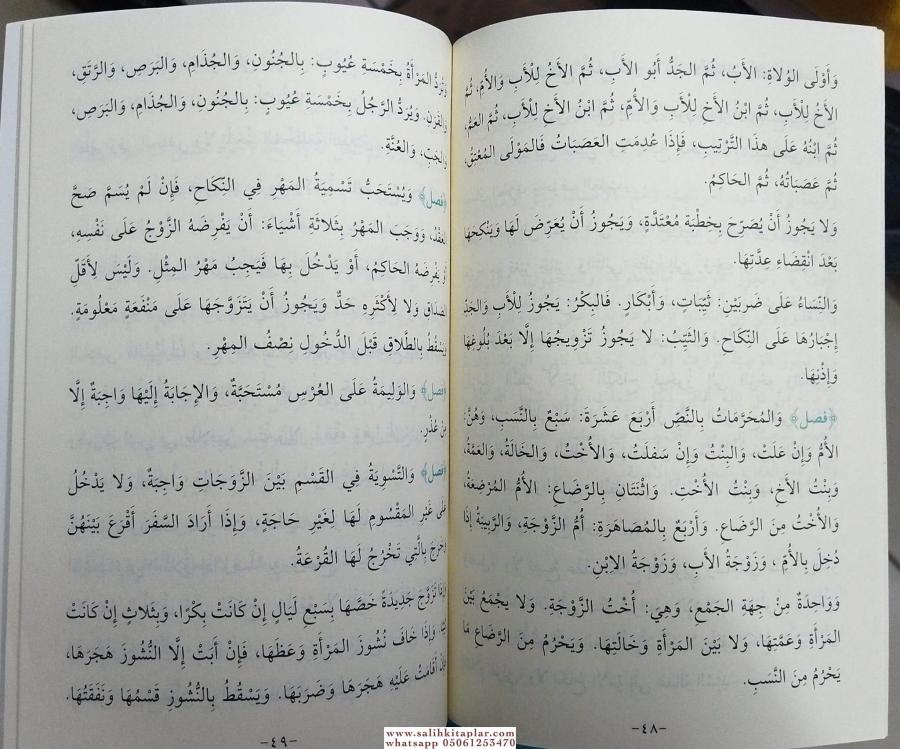 وَأَوْلَى الوُلاةِ: الأَبُ، ثُمَّ الجَدُّ أَبُو الأَبِ، ثُمَّ الأَخُ لِلْأَبِ وَالأُمِّ، ثُمَّ
الأَخُ لِلْأَبِ، ثُمَّ ابْنُ الأَخِ لِلْأَبِ وَالأُمِّ، ثُمَّ ابْنُ الأَخِ لِلْأَبِ، ثُمَّ العَمُّ،
ثُمَّ ابْنُهُ عَلَى هذَا التَّرْتِيبِ، فَإِذَا عُدِمَتِ العَصَبَاتُ فَالمَوْلَى المُعْتِقُ،
ثُمَّ عَصَبَاتُهُ، ثُمَّ الحَاكِمُ.
وَلا يَجُوزُ أَنْ يُصَرِّحَ بِخِطْبَةِ مُعْتَدَّةٍ، وَيَجُوزُ أَنْ يُعَرِّضَ لَهَا وَيَنْكِحَهَا
بَعْدَ انْقِضَاءِ عِدَّتِهَا.
وَالنِّسَاءُ عَلَى ضَرَبَيْنِ: ثَيِّبَاتٍ، وَأَبْكَارٍ. فَالبِكْرُ: يَجُوزُ لِلْأَبِ وَالجَدِّ
إِجْبَارُهَا عَلَى النِّكَاحِ. وَالثَّيِّبُ: لا يَجُوزُ تَزْوِيجُهَا إِلَّا بَعْدَ بُلُوغِهَا
وَإِذْنِهَا.
﴿فصل﴾ وَالمُحَرَّمَاتُ بِالنَّصِّ أَرْبَعَ عَشَرَةَ: سَبْعٌ بِالنَّسَبِ، وَهُنَّ:
الأُمُّ وَإِنْ عَلَتْ، وَالبِنْتُ وَإِنْ سَفَلَتْ، وَالأُخْتُ، وَالخَالَةُ، وَالعَمَّةُ،
وَبِنْتُ الأَخِ، وَبِنْتُ الأُخْتِ. وَاثْنَتَانِ بِالرَّضَاعِ: الأُمُّ المُرْضِعَةُ،
وَالأُخْتُ مِنَ الرَّضَاعِ. وَأَرْبَعٌ بِالمُصَاهَرَةِ: أُمُّ الزَّوْجَةِ، وَالرَّبِيبَةُ إِذَا
دُخِلَ بِالأُمِّ، وَزَوْجَةُ الأَبِ، وَزَوْجَةُ الاِبْنِ.
وَوَاحِدَةٌ مِنْ جِهَةِ الجَمْعِ، وَهِيَ: أُخْتُ الزَّوْجَةِ. وَلا يجْمَعُ بَيْنَ
المَرْأَةِ وَعَمَّتِهَا، وَلا بَيْنَ المَرْأَةِ وَخَالَتِهَا. وَيَحْرُمُ مِنَ الرَّضَاعِ مَا
يَحْرُمُ مِنَ النَّسَبِ.
-٤٨-
وَتُرَدُّ المَرْأَةُ بِخَمْسَةِ عُيُوبٍ: بِالجُنُونِ، وَالجُذَامِ، وَالبَرَصِ، وَالرَّتَقِ،
وَالقَرَنِ. وَيُرَدُّ الرَّجُلُ بِخَمْسَةِ عُيُوبٍ: بِالجُنُونِ، وَالجُذَامِ، وَالبَرَصِ،
وَالجَبِّ، وَالعُنَّةِ.
﴿فصل﴾ وَيُسْتَحَبُّ تَسْمِيَةُ المَهْرِ فِي النِّكَاحِ، فَإِنْ لَمْ يُسَمَّ صَحَّ
العَقْدُ، وَوَجَبَ المَهْرُ بِثَلاثَةِ أَشْيَاءَ: أَنْ يَفْرِضَهُ الزَّوْجُ عَلَى نَفْسِهِ،
أَوْ يَفْرِضَهُ الحَاكِمُ، أَوْ يَدْخُلَ بِهَا فَيَجِبُ مَهْرُ المِثْلِ. وَلَيْسَ لِأَقَلِّ
الصَّدَاقِ وَلا لِأَكْثَرِهِ حَدٌّ وَيَجُوزُ أَنْ يَتَزَوَّجَهَا عَلَى مَنْفَعَةٍ مَعْلُومَةٍ.
وَيَسْقُطُ بِالطَّلاقِ قَبْلَ الدُّخُولِ نِصْفُ المَهْرِ.
﴿فصل﴾ وَالوَلِيمَةُ عَلَى العُرْسِ مُسْتَحَبَّةٌ، وَالإِجَابَةُ إِلَيْهَا وَاجِبَةٌ إِلَّا
مِنْ عُذْرٍ.
﴿فصل﴾ وَالتَّسْوِيَةُ فِي القَسْمِ بَيْنَ الزَّوَجَاتِ وَاجِبَةٌ، وَلا يَدْخُلُ
عَلَى غَيْرِ المَقْسُومِ لَهَا لِغَيْرِ حَاجَةٍ، وَإِذَا أَرَادَ السَّفَرَ أَقْرَعَ بَيْنَهُنَّ
وَخَرَجَ بِالَّتِي تَخْرُجُ لَهَا القُرْعَةُ.
وَإِذَا تَزَوَّجَ جَدِيدَةً خَصَّهَا بِسَبْعِ لَيَالٍ إِنْ كَانَتْ بِكْرًا، وَبِثَلاثٍ إِنْ كَانَتْ
ثَيِّبًا، وَإِذَا خَافَ نُشُوزَ المَرْأَةِ وَعَظَهَا، فَإِنْ أَبَتْ إِلَّا النُّشُوزَ هَجَرَهَا،
فَإِنْ أَقَامَتْ عَلَيْهِ هَجَرَهَا وَضَرَبَهَا. وَيَسْقُطُ بِالنُّشُوزِ قَسْمُهَا وَنَفَقَتُهَا.
-٤٩-
www.salihkitaplar.com
whatsapp 05061253470